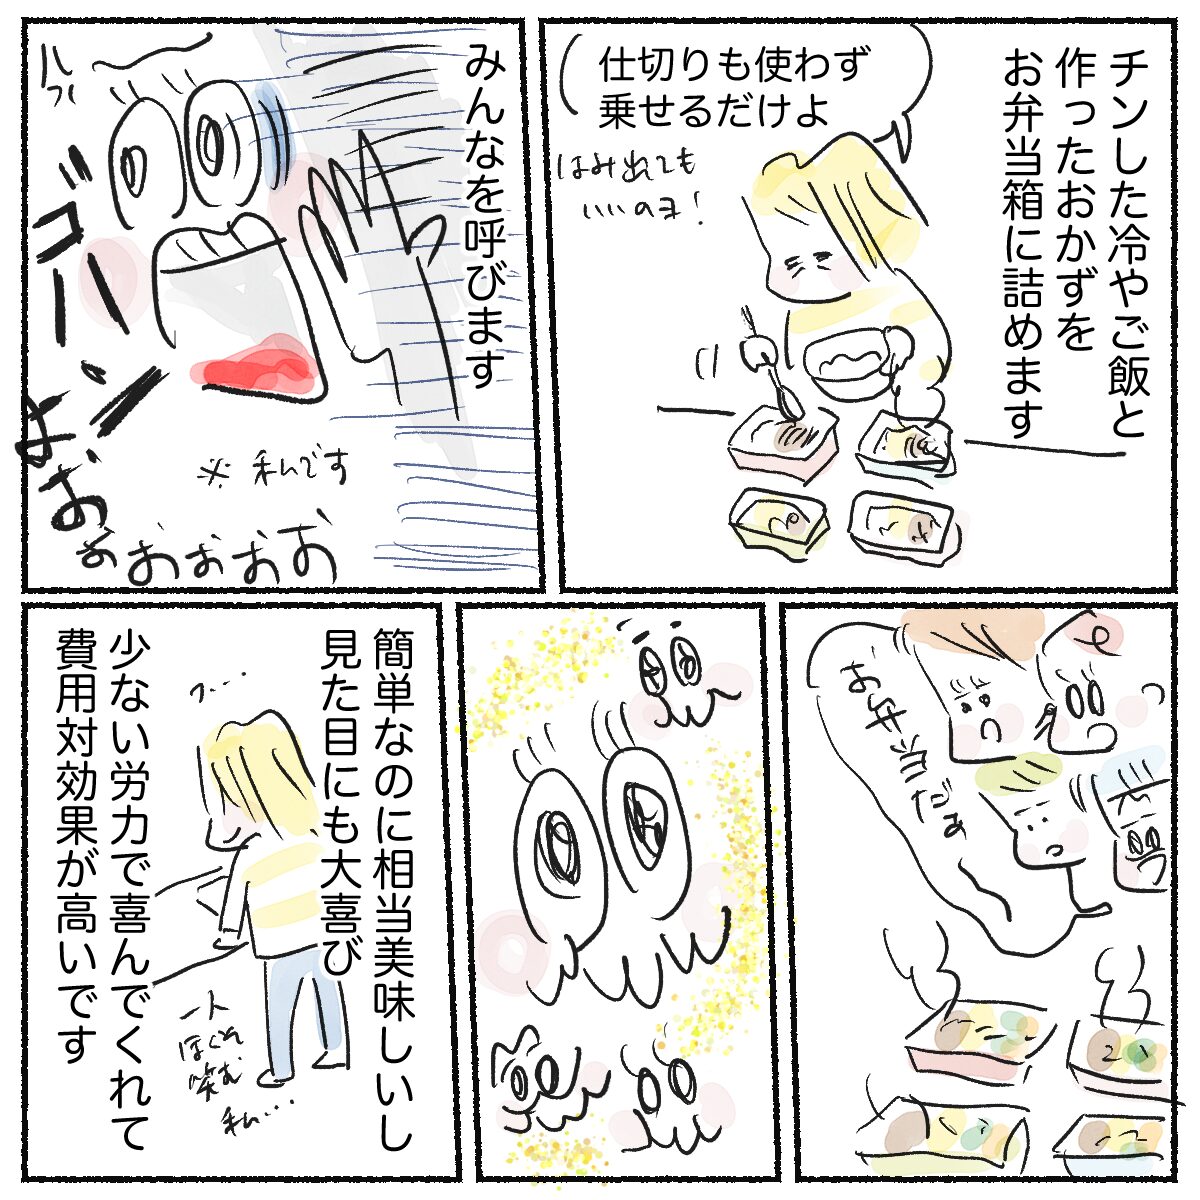 チンした冷やご飯と
作ったおかずを
お弁当箱に詰めます
仕切りも使わず
乗せるだけよ
はみ出ても
いいのよ!
みんなを呼びます
ゴハン
よぉ
おぉおぉおお
※私です
お弁当だぁ
簡単なのに相当美味しいし
見た目にも大喜び
少ない労力で喜んでくれて
費用対効果が高いです
フ…
一人
ほくそ
笑む
私…